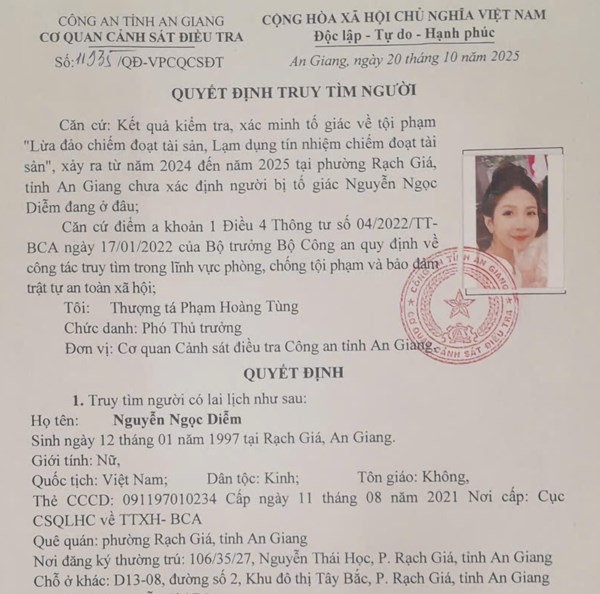 CÔNG AN TỈNH AN GIANG
CƠ QUAN CẢNH SÁT ĐIỀU TRA
Số: 11935/QĐ-VPCQCSĐT
CỘNG HÒA XÃ HỘI CHỦ NGHĨA VIỆT NAM
Độc lập - Tự do - Hạnh phúc
An Giang, ngày 20 tháng 10 năm 2025
QUYẾT ĐỊNH TRUY TÌM NGƯỜI
Căn cứ: Kết quả kiểm tra, xác minh tố giác về tội phạm
"Lừa đảo chiếm đoạt tài sản, Lạm dụng tín nhiệm chiếm đoạt tài
sản", xảy ra từ năm 2024 đến năm 2025 tại phường Rạch Giá,
tỉnh An Giang chưa xác định người bị tố giác Nguyễn Ngọc
Diễm đang ở đâu;
Căn cứ điểm a khoản 1 Điều 4 Thông tư số 04/2022/TT-
BCA ngày 17/01/2022 của Bộ trưởng Bộ Công an quy định về
công tác truy tìm trong lĩnh vực phòng, chống tội phạm và bảo đảm
trật tự an toàn xã hội;
Tôi: Thượng tá Phạm Hoàng Tùng
Chức danh: Phó Thủ trưởng
Đơn vị: Cơ quan Cảnh sát điều tra Công an tỉnh An Giang.
CÔNG AN TỈNH AN GIANG
CƠ QUAN CẢNH SÁT ĐIỀU TRA
QUYẾT ĐỊNH
1. Truy tìm người có lai lịch như sau:
Họ tên: Nguyễn Ngọc Diễm
Sinh ngày 12 tháng 01 năm 1997 tại Rạch Giá, An Giang.
Giới tính: Nữ,
Quốc tịch: Việt Nam; Dân tộc: Kinh; Tôn giáo: Không,
Thẻ CCCD: 091197010234 Cấp ngày 11 tháng 08 năm 2021 Nơi cấp: Cục
CSQLHC về TTXH- BCA
Quê quán: phường Rạch Giá, tỉnh An Giang
Nơi đăng ký thường trú: 106/35/27, Nguyễn Thái Học, P. Rạch Giá, tỉnh An Giang
Chỗ ở khác: D13-08, đường số 2, Khu đô thị Tây Bắc, P. Rạch Giá, tỉnh An Giang